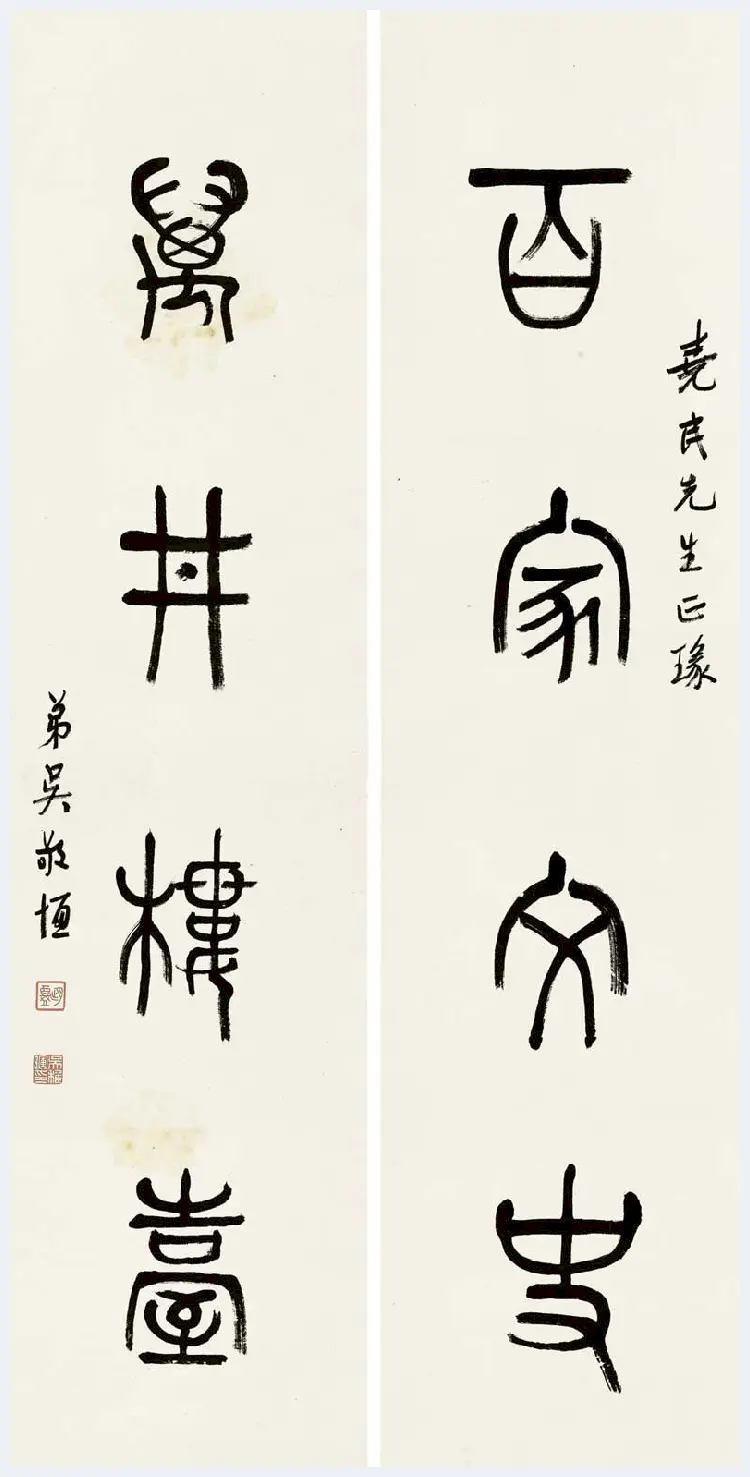 堯民先生正瑑
百家文史
萬井樓臺
弟吳敬恆